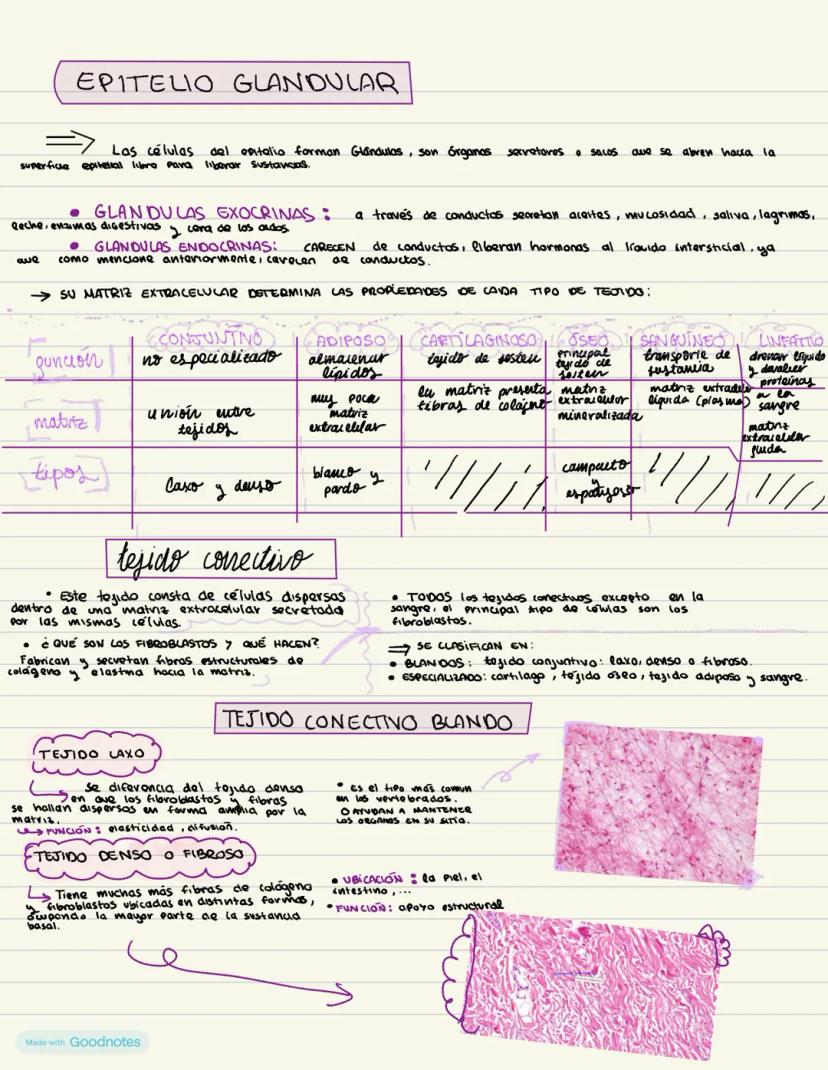 EPITELIO GLANDULAR
⇒ Las células del epitelio forman Glándulas, son órganos secretores o sacos que se abren hacia la
superficie epitelial libre para liberar sustancias.
• GLANDULAS EXOCRINAS: a través de conductos secretan aceites, mucosidad, saliva, lagrimas,
leche, enzimas digestivas y cera de los oidos.
• GLANDULAS ENDOCRINAS: CARECEN de conductos, liberan hormonas al líquido intersticial, ya
que como mencione anteriormente, carecen de conductos.
→ SU MATRIZ EXTRACELULAR DETERMINA LAS PROPIEDADES DE CADA TIPO DE TEJIDO:
CONJUNTIVO ADIPOSO CARTILAGINOSO ÓSEO SANGUÍNEO LINFATICO
función
no especializado
almacenar
lípidos
tejido de sosten
principal
tejido de
sosten
transporte de
sustancia
drenar líquido
y devolver
proteínas
a la
sangre
matriz
unión entre
tejidos
muy poca
matriz
extracelular
la matriz presenta
fibras de colageno
matriz
extracelular
mineralizada
matriz extracelular
líquida (plasma)
matriz
extracelular
fluida
tipos
laxo y denso
blanco y
pardo
compacto
y
esponjoso
tejido conectivo
• Este tejido consta de células dispersas
dentro de una matriz extracelular secretada
por las mismas células.
• ¿QUÉ SON LOS FIBROBLASTOS Y QUÉ HACEN?
Fabrican y secretan fibras estructurales de
colágeno y elastina hacia la matriz.
• TODOS los tejidos conectivos excepto en la
sangre, el principal tipo de células son los
fibroblastos.
⇒ SE CLASIFICAN EN:
• BLANDOS: tejido conjuntivo: laxo, denso o fibroso.
• ESPECIALIZADO: cartílago, tejido óseo, tejido adiposo y sangre.
TEJIDO CONECTIVO BLANDO
TEJIDO LAXO
Se diferencia del tejido denso
en que los fibroblastos y fibras
se hallan dispersos en forma amplia por la
matriz.
FUNCIÓN: elasticidad, difusión.
• Es el tipo más comun
en los vertebrados.
O AYUDAN A MANTENER
LOS ORGANOS EN SU SITIO.
TEJIDO DENSO O FIBROSO
Tiene muchas más fibras de colágeno
y fibroblastos ubicadas en distintas formas,
ocupando la mayor parte de la sustancia
basal.
• UBICACIÓN: la piel, el
intestino, ...
• FUNCIÓN: apoyo estructural
Made with Goodnotes